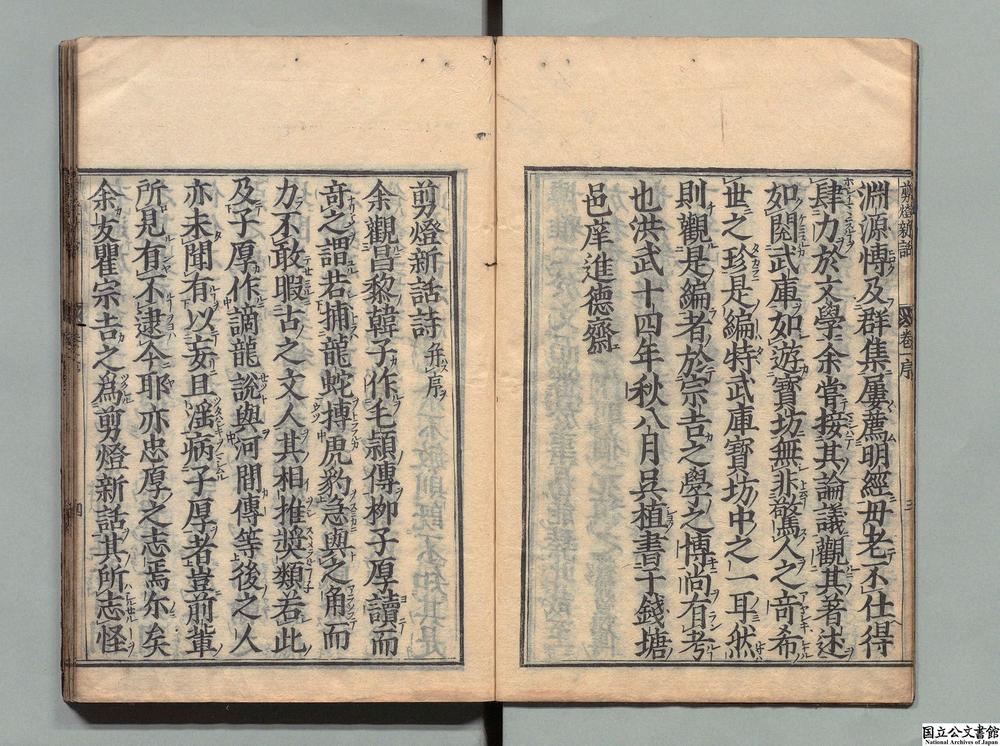 剪燈新話
卷一序
三
淵源博及群集屢薦明經毋老不仕得
肆力於文學余嘗接其論議觀其著述
如閱武庫如遊寶坊無非驚人之奇希
世之珍是編特武庫寶坊中之一耳然
則觀是編者於宗吉之學之博尚有考
也洪武十四年秋八月吳植書于錢塘
邑庠進德齋
剪燈新話詩 并序
余觀昌黎韓子作毛頴傳柳子厚讀而
奇之謂若捕龍蛇搏虎豹急與之角而
力不敢暇古之文人其相推奬類若此
及子厚作謫龍說與河間傳等後之人
亦未聞有以妄且淫病子厚者豈前輩
所見有不逮今耶亦忠厚之志焉尓矣
余友瞿宗吉之爲剪燈新話其所志怪
四
国立公文書館
National Archives of Japan